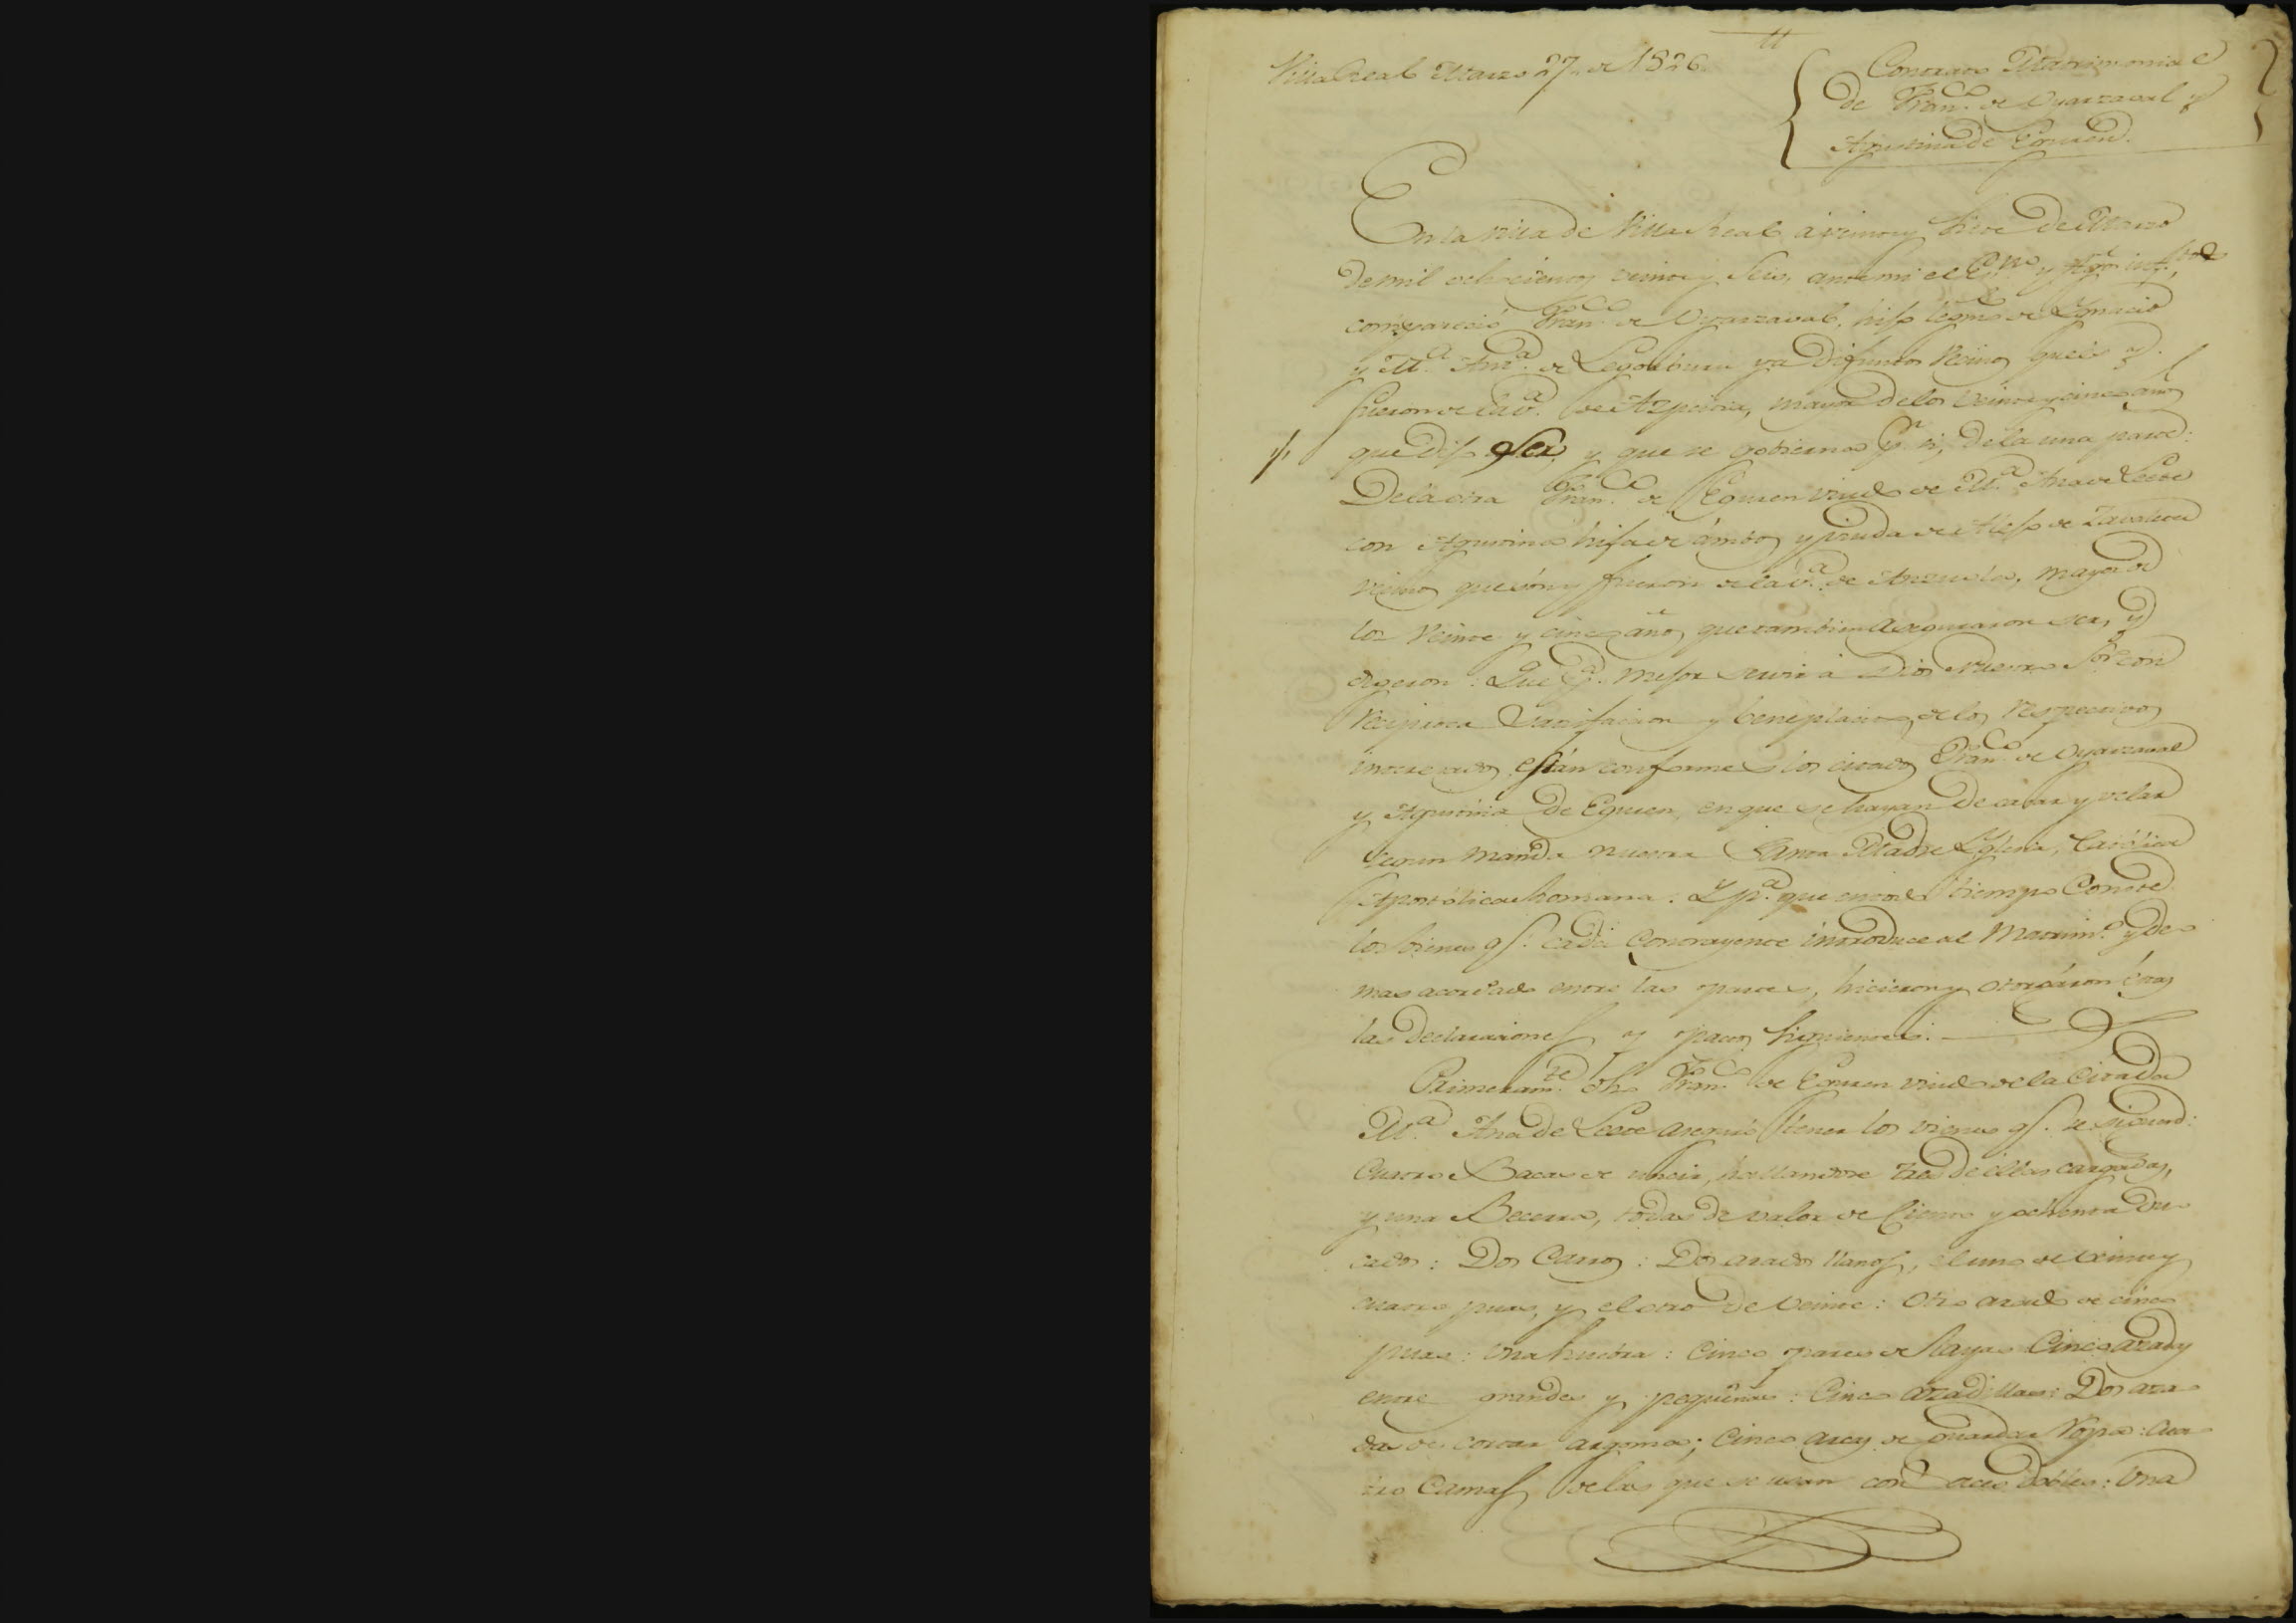 Villa Real Marzo 27 de 1826
Contrato Matrimonial
de Fran.co de Oyarzaval y
Agustina de Eguren.
En la villa de Villa Real á veinte y siete de Marzo
de mil ochocientos veinte y seis, ante mi el Es.no y
compareció Fran.co de Oyarzaval, hijo legmo de Ygnacio
y M.a Ant.a de Legorburu ya difuntos vecinos que es y
fueron de la v.a de Azpeitia, mayor de los veinte y cinco años
que dijo ser, y que se gobierna p.r si, de la una parte:
De la otra Fran.co de Eguren viudo de M.a Ana de Lecee
con Agustina hija de ámbos y viuda de Alejo de Zavaleta
vecinos que són y fueron de la v.a de Anzuola, mayor de
los veinte y cinco años que tambien aseguraron ser, y
digeron: Que p.a mejor servir á Dios Nuestro Sor con
reciproca satisfaccion y beneplacito de los respectivos
interesados, están conformes los citados Fran.co de Oyarzaval
y Agustina de Eguren, en que se hayan de casar y velar
segun manda nuestra Santa Madre Yglesia, Católica
Apostólica Romana. Y p.a que en todo tiempo Conste
los bienes q.e cada Contrayente introduce al Matrim.o y de
mas acordado entre las partes, hicieron y otorgáron éstas
las declaraciones y pactos siguientes.
Primeram.te dho Fran.co de Eguren viudo de la Citada
M.a Ana de Lecee aseguró tener los vienes q.e se siguen:
Cuatro Bacas de uncir, hallandose tres de éllas cargadas,
y una Becerra, todas de valor de Ciento y ochenta du
cados: Dos Carros: Dos arados llanos, el uno de veinte y
cuatro puas, y el otro de veinte: Otro arado de cinco
puas: Una huebra: Cinco pares de layas Cinco azadas
entre grandes y pequeñas: Cinco azadillas: Dos aza
das de cortar argoma; Cinco arcas de guardar Ropa: Cua
tro Camas de las que se usan con aces dobles: Una